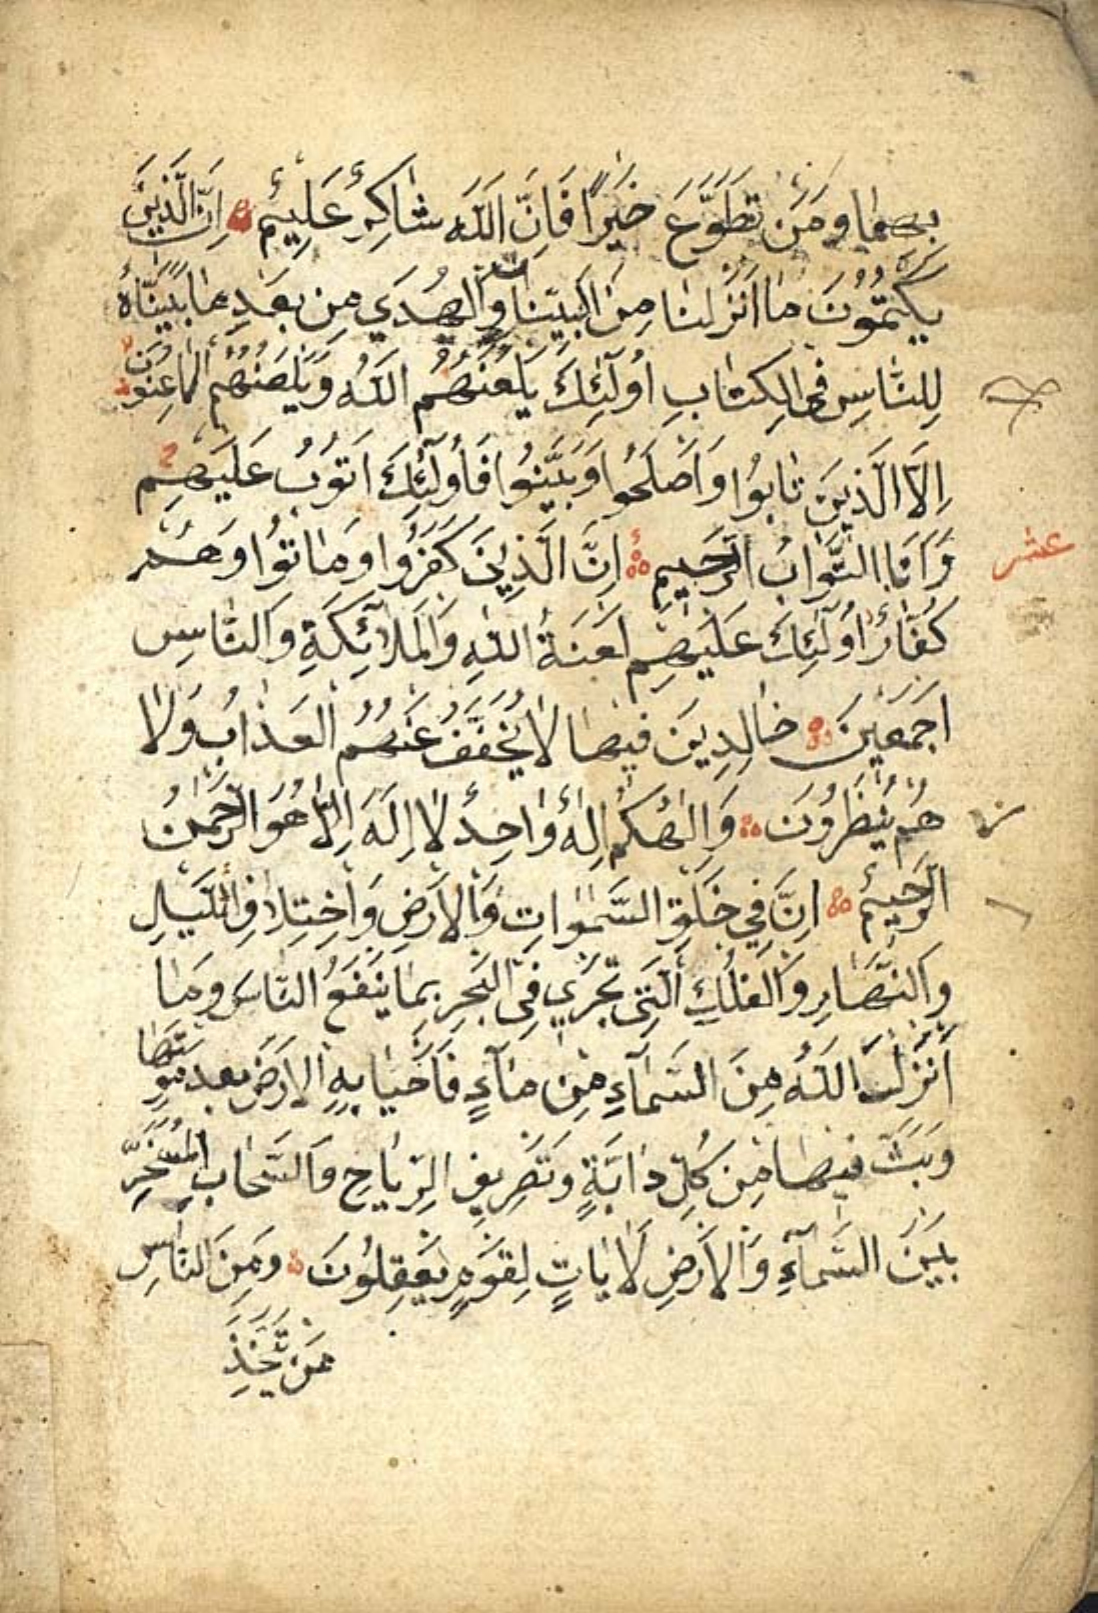 بِهِمَا وَمَنْ تَطَوَّعَ خَيْرًا فَاِنَّ اللَّهَ شَاكِرٌ عَلِيمٌ اِنَّ الَّذِينَ
يَكْتُمُونَ مَا اَنْزَلْنَا مِنَ الْبَيِّنَاتِ وَالْهُدَى مِنْ بَعْدِ مَا بَيَّنَّاهُ
لِلنَّاسِ فِى الْكِتَابِ اُولَٓئِكَ يَلْعَنُهُمُ اللَّهُ وَيَلْعَنُهُمُ اللَّاعِنُونَ
اِلَّا الَّذِينَ تَابُوا وَاَصْلَحُوا وَبَيَّنُوا فَاُولَٓئِكَ اَتُوبُ عَلَيْهِمْ
وَاَنَا التَّوَّابُ الرَّحِيمِ اِنَّ الَّذِينَ كَفَرُوا وَمَاتُوا وَهُمْ
عشر
كُفَّارٌ اُولَٓئِكَ عَلَيْهِمْ لَعْنَةُ اللَّهِ وَالْمَلَٓائِكَةِ وَالنَّاسِ
اَجْمَعِينَ خَالِدِينَ فِيهَا لَا يُخَفَّفُ عَنْهُمُ الْعَذَابُ وَلَا
هُمْ يُنْظَرُونَ وَاِلٰهُكُمْ اِلٰهٌ وَاحِدٌ لَا اِلَهَ اِلَّا هُوَ الرَّحْمٰنُ
الرَّحِيمُ اِنَّ فِي خَلْقِ السَّمٰوَاتِ وَالْاَرْضِ وَاخْتِلَافِ اللَّيْلِ
وَالنَّهَارِ وَالْفُلْكِ الَّتِى تَجْرِي فِى الْبَحْرِ بِمَا يَنْفَعُ النَّاسَ وَمَا
اَنْزَلَ اللَّهُ مِنَ السَّمَٓاءِ مِنْ مَٓاءٍ فَاَحْيَا بِهِ الْاَرْضَ بَعْدَ مَوْتِهَا
وَبَثَّ فِيهَا مِنْ كُلِّ دَابَّةٍ وَتَصْرِيفِ الرِّيَاحِ وَالسَّحَابِ الْمُسَخَّرِ
بَيْنَ السَّمَٓاءِ وَالْاَرْضِ لَاٰيَاتٍ لِقَوْمٍ يَعْقِلُونَ وَمِنَ النَّاسِ
مَنْ يَتَّخِذُ